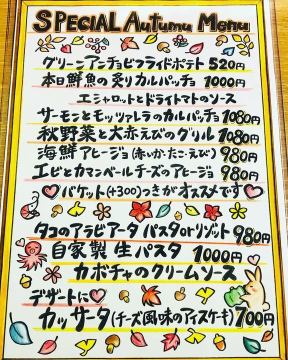 SPECIAL Autumu Menu
グリーンアンチョビフライドポテト 520円
本日鮮魚の炙りカルパッチョ 1000円
エシャロットとドライトマトのソース
サーモンとモッツァレラのカルパッチョ 1080円
秋野菜と大赤えびのグリル 1080円
海鮮アヒージョ(赤いか・たこ・えび) 980円
エビとカマンベールチーズのアヒージョ 980円
♡バケット(+300)つきがオススメです♡
タコのアラビアータ パスタorリゾット 980円
自家製 生パスタ 1000円
カボチャのクリームソース
デザートに♡
カッサータ(チーズ風味のアイスケーキ) 700円